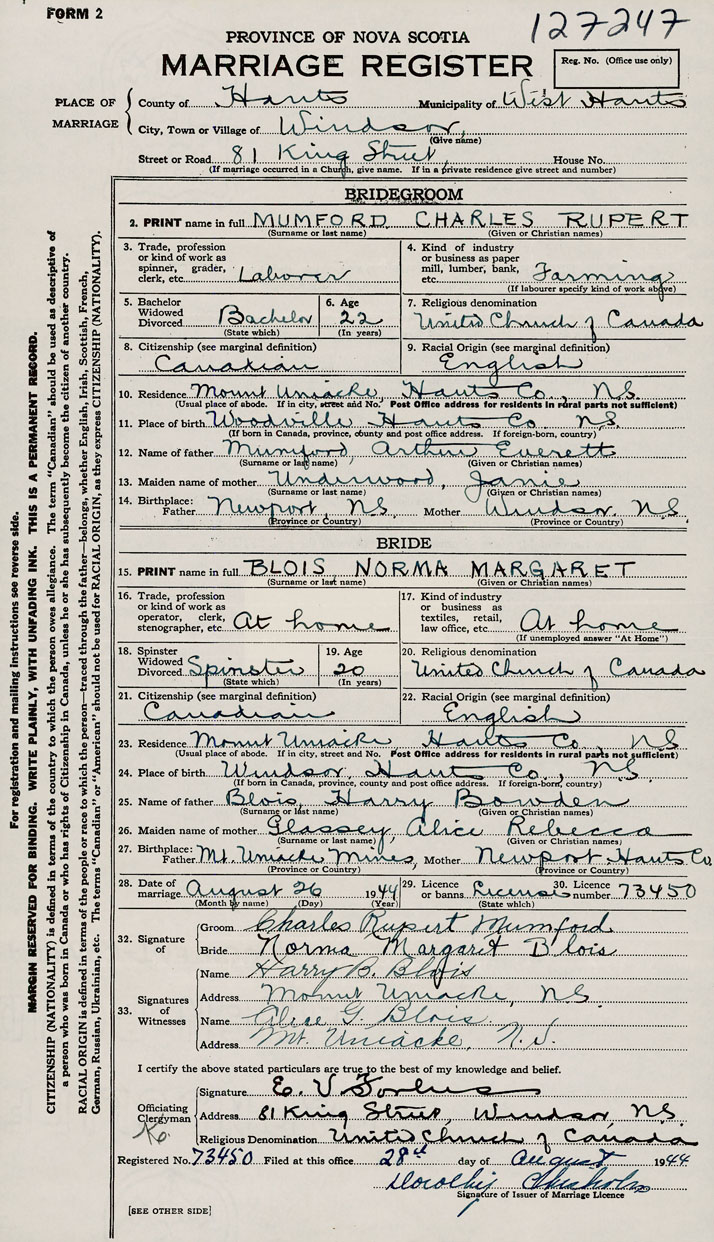 FORM 2
127247
PROVINCE OF NOVA SCOTIA
MARRIAGE REGISTER
Reg. No. (Office use only)
PLACE OF MARRIAGE
County of Hants Municipality of West Hants
City, Town or Village of Windsor,
(Give name)
Street or Road 81 King Street, House No.
(If marriage occurred in a Church, give name. If in a private residence give street and number)
BRIDEGROOM
2. PRINT name in full MUMFORD CHARLES RUPERT
(Surname or last name) (Given or Christian names)
3. Trade, profession or kind of work as spinner, grader, clerk, etc. Laborer
4. Kind of industry or business as paper mill, lumber, bank, etc. Farming
(If labourer specify kind of work above)
5. Bachelor Widowed Divorced Bachelor
(State which)
6. Age 22
(In years)
7. Religious denomination
United Church of Canada
8. Citizenship (see marginal definition)
Canadian
9. Racial Origin (see marginal definition)
English
10. Residence Mount Uniacke Hants Co., N.S.
(Usual place of abode. If in city, street and No. Post Office address for residents in rural parts not sufficient)
11. Place of birth Woodville Hants Co. N.S.
(If born in Canada, province, county and post office address. If foreign-born, country)
12. Name of father Mumford, Arthur Everett
(Surname or last name) (Given or Christian names)
13. Maiden name of mother Underwood, Janie
(Surname or last name) (Given or Christian names)
14. Birthplace: Father Newport, N.S. Mother Windsor, N.S.
(Province or Country) (Province or Country)
BRIDE
15. PRINT name in full BLOIS NORMA MARGARET
(Surname or last name) (Given or Christian names)
16. Trade, profession or kind of work as operator, clerk, stenographer, etc. At home
17. Kind of industry or business as textiles, retail, law office, etc. At home
(If unemployed answer "At Home")
18. Spinster Widowed Divorced Spinster
(State which)
19. Age 20
(In years)
20. Religious denomination
United Church of Canada
21. Citizenship (see marginal definition)
Canadian
22. Racial Origin (see marginal definition)
English
23. Residence Mount Uniacke Hants Co., N.S.
(Usual place of abode. If in city, street and No. Post Office address for residents in rural parts not sufficient)
24. Place of birth Windsor, Hants Co., N.S.
(If born in Canada, province, county and post office address. If foreign-born, country)
25. Name of father Blois, Harry Bowden
(Surname or last name) (Given or Christian names)
26. Maiden name of mother Glassey, Alice Rebecca
(Surname or last name) (Given or Christian names)
27. Birthplace: Father Mt. Uniacke Mines, Mother Newport Hants Co.
(Province or Country) (Province or Country)
28. Date of marriage August 26 1944
(Month by name) (Day) (Year)
29. Licence or banns License
(State which)
30. Licence number 73450
32. Signature of
Groom Charles Rupert Mumford
Bride Norma Margaret Blois
33. Signatures of Witnesses
Name Harry B. Blois
Address Mount Uniacke, N.S.
Name Alice G. Blois
Address Mt. Uniacke, N.S.
I certify the above stated particulars are true to the best of my knowledge and belief.
Officiating Clergyman
Signature E. V. Forbes
Address 81 King Street, Windsor, N.S.
Religious Denomination United Church of Canada
Registered No. 73450 Filed at this office 28th day of August 1944
Dorothy Chisholm
Signature of Issuer of Marriage Licence
[SEE OTHER SIDE]
For registration and mailing instructions see reverse side.
MARGIN RESERVED FOR BINDING. WRITE PLAINLY, WITH UNFADING INK. THIS IS A PERMANENT RECORD.
CITIZENSHIP (NATIONALITY) is defined in terms of the country to which the person owes allegiance. The term "Canadian" should be used as descriptive of
a person who was born in Canada or who has rights of Citizenship in Canada, unless he or she has subsequently become the citizen of another country.
RACIAL ORIGIN is defined in terms of the people or race to which the person—traced through the father—belongs, whether English, Irish, Scottish, French,
German, Russian, Ukrainian, etc. The terms "Canadian" or "American" should not be used for RACIAL ORIGIN, as they express CITIZENSHIP (NATIONALITY).